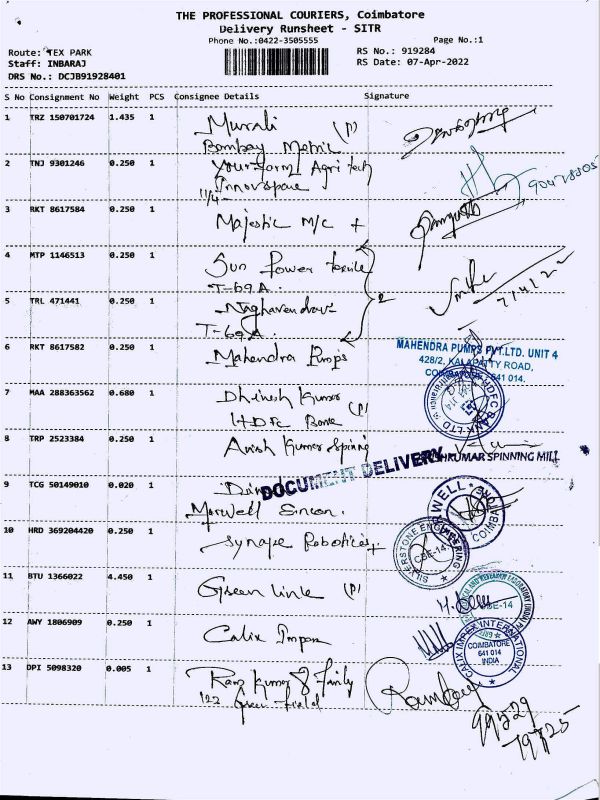 THE PROFESSIONAL COURIERS, Coimbatore
Delivery Runsheet - SITR
Phone No.:0422-3505555
Page No.:1
Route: TEX PARK
RS No.: 919284
Staff: INBARAJ
RS Date: 07-Apr-2022
DRS No.: DCJB91928401
S No Consignment No Weight PCS Consignee Details Signature
1 TRZ 150701724 1.435 1 Murali (P)
Bombay
2 TNJ 9301246 0.250 1 Your farm Agri tech
Innovspace
11/4
3 RKT 8617584 0.250 1 Majestic M/c
4 MTP 1146513 0.250 1 Sun Power
T-69A.
7/4/22
5 TRL 471441 0.250 1
T-69A.
2
6 RKT 8617582 0.250 1 Mahendra Pumps
MAHENDRA PUMPS PVT.LTD. UNIT 4
428/2, KALAPATTY ROAD,
641 014.
7 MAA 288363562 0.680 1 Dhinesh Kumar
HDFC Bank (P)
HDFC BANK LTD
8 TRP 2523384 0.250 1 Kumar Spinning
KUMAR SPINNING MILL
DOCUMENT DELIVERY
9 TCG 50149010 0.020 1
Maxwell
COIMBA
10 HRD 369204420 0.250 1 Synapse Robotics
SILVERSTONE ENGINEERING
CBE-14
11 BTU 1366022 4.450 1 Green link (P)
CBE-14
12 AWY 1806909 0.250 1 Calix Impex
CALIX IMPEX INTERNATIONAL
COIMBATORE
641 014
INDIA
13 DPI 5098320 0.005 1 Ram Kumar & Family
122 Green Field
99529
79725